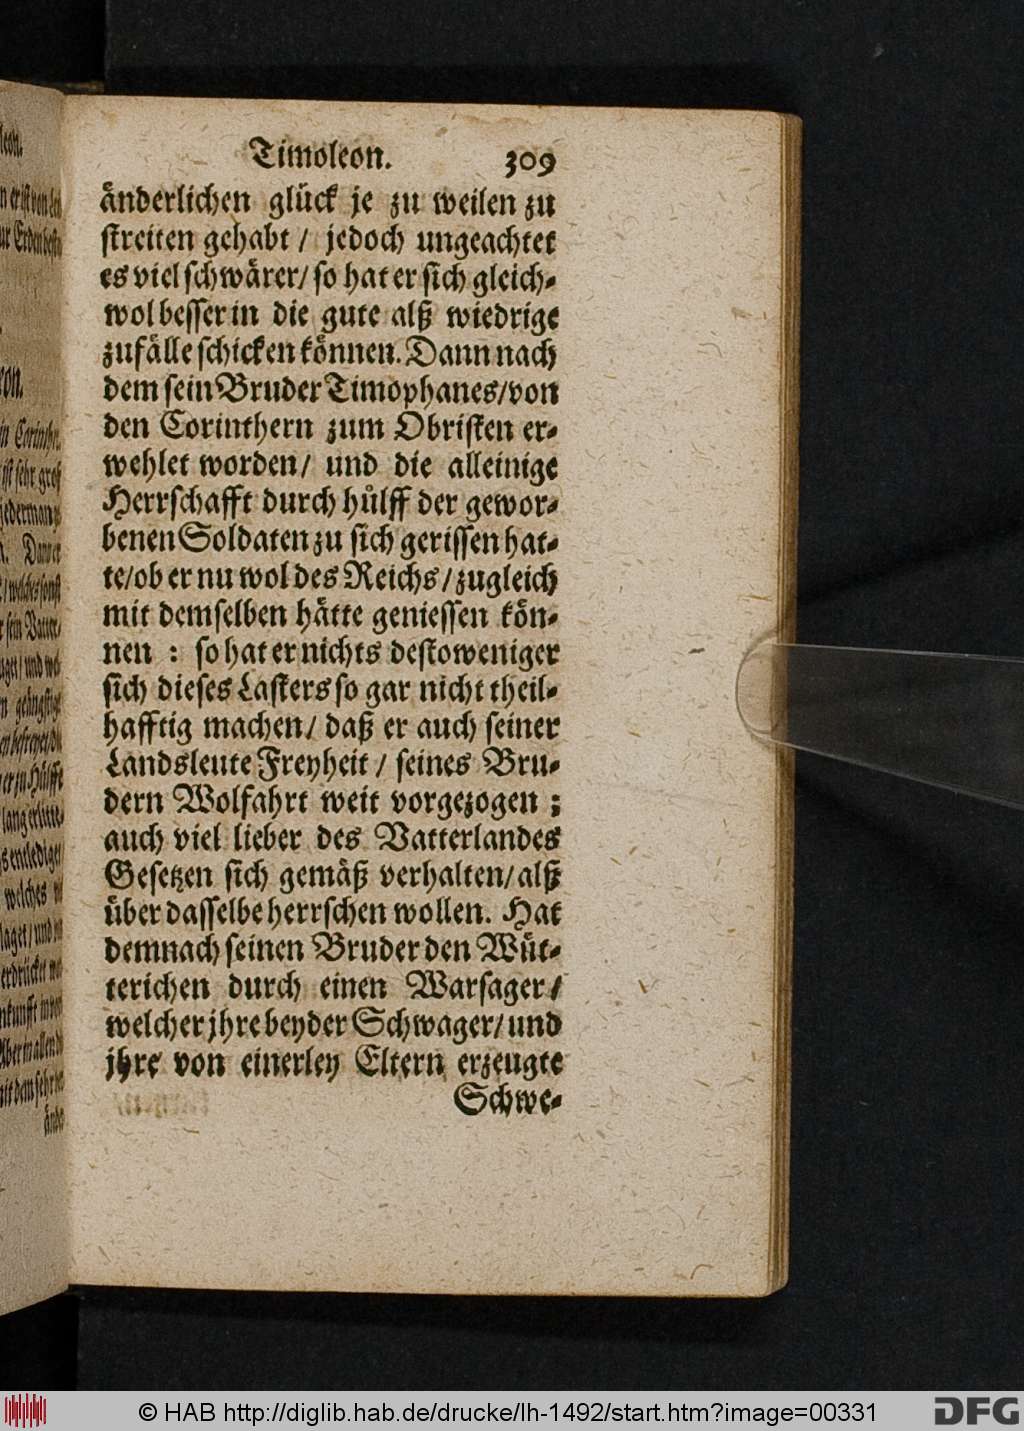 Timoleon. 309
änderlichen glück je zu weilen zu
streiten gehabt / jedoch ungeachtet
es viel schwärer / so hat er sich gleich-
wol besser in die gute alß wiedrige
zufälle schicken können. Dann nach
dem sein Bruder Timophanes / von
den Corinthern zum Obristen er-
wehlet worden / und die alleinige
Herrschafft durch hülff der gewor-
benen Soldaten zu sich gerissen hat-
te / ob er nu wol des Reichs / zugleich
mit demselben hätte geniessen kön-
nen : so hat er nichts destoweniger
sich dieses Lasters so gar nicht theil-
hafftig machen / daß er auch seiner
Landsleute Freyheit / seines Bru-
dern Wolfahrt weit vorgezogen ;
auch viel lieber des Vatterlandes
Gesetzen sich gemäß verhalten / alß
über dasselbe herrschen wollen. Hat
demnach seinen Bruder den Wüt-
terichen durch einen Warsager /
welcher jhre beyder Schwager / und
jhre von einerley Eltern erzeugte
Schwe-
© HAB http://diglib.hab.de/drucke/lh-1492/start.htm?image=00331
DFG